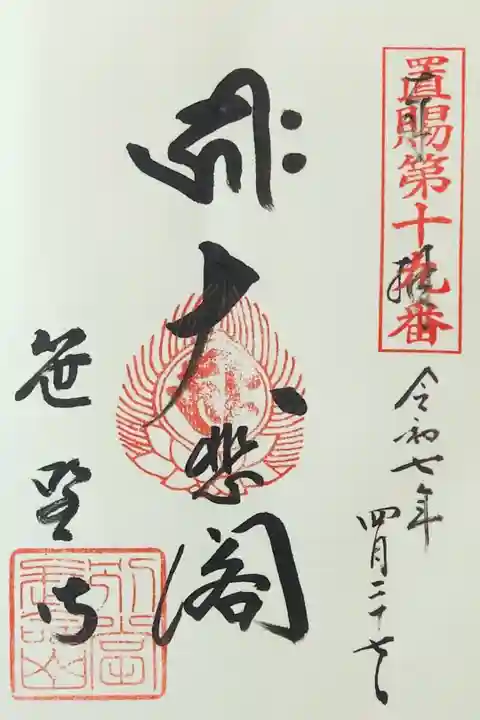 置賜第十九番
奉拝
令和七年
四月二十七日
大悲閣
笹
寺